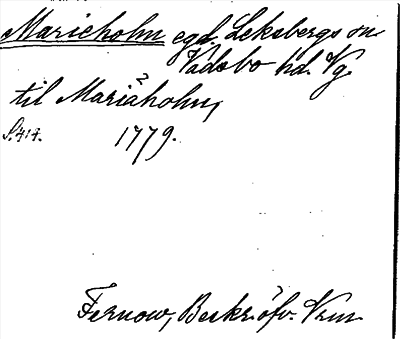 Marieholm egd. Leksbergs sn
Vadsbo hd. Vg.
til Mariæholm,
S. 414. 1779.
Fernow, Beskrifv. Vrm